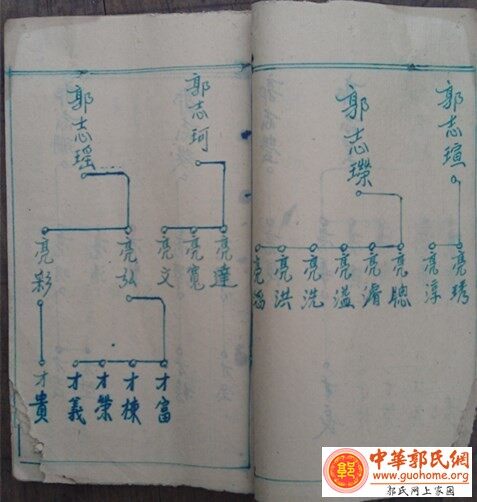 郭志瑄
亮琇
亮淳
郭志璨
亮聰
亮濬
亮溢
亮洗
亮洪
郭志珂
亮達
亮寬
亮文
郭志瑶
亮弘
亮彩
才富
才棟
才榮
才義
才貴
中華郭氏網
www.guohome.org
郭氏网上家园